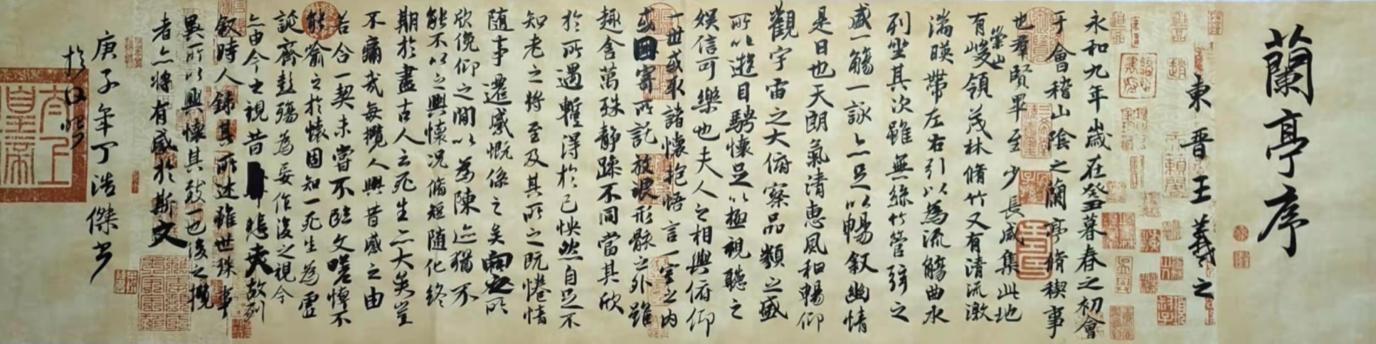 蘭亭序
東晉王羲之
永和九年歲在癸丑暮春之初會
于會稽山陰之蘭亭脩稧事
也羣賢畢至少長咸集此地
有崇山峻領茂林脩竹又有清流激
湍暎帶左右引以為流觴曲水
列坐其次雖無絲竹管弦之
盛一觴一詠亦足以暢叙幽情
是日也天朗氣清惠風和暢仰
觀宇宙之大俯察品類之盛
所以遊目騁懷足以極視聽之
娛信可樂也夫人之相與俯仰
一世或取諸懷抱悟言一室之內
或因寄所託放浪形骸之外雖
趣舍萬殊静躁不同當其欣
於所遇暫得於己怏然自足不
知老之將至及其所之既惓情
隨事遷感慨係之矣向之所
欣俛仰之間以為陳迹猶不
能不以之興懷況脩短隨化終
期於盡古人云死生亦大矣豈
不痛哉每攬人興昔感之由
若合一契未嘗不臨文嗟悼不
能喻之於懷固知一死生為虛
誕齊彭殤為妄作後之視今
亦由今之視昔悲夫故列
叙時人錄其所述雖世殊事
異所以興懷其致一也後之攬
者亦將有感於斯文
庚子年丁浩傑書
於日照
太上皇帝